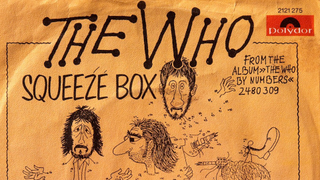 2121 275
polydor
THE WHO
SQUEEZE BOX
FROM THE
ALBUM »THE WHO
BY NUMBERS«
2480 309